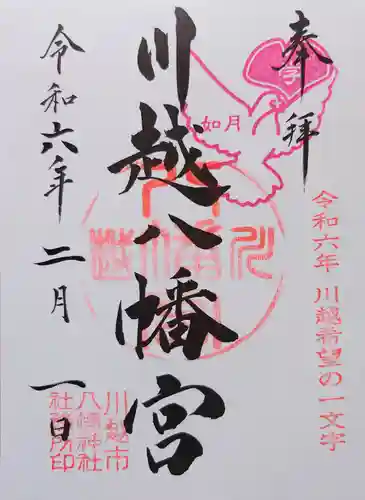 奉拝
如月
令和六年 川越希望の一文字
川越八幡宮
川越市
八幡神社
社務所印
令和六年 二月 一日